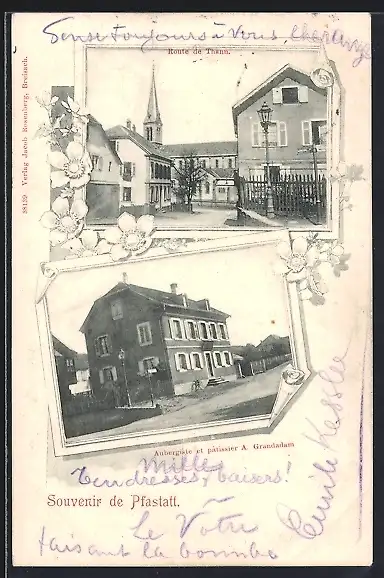 Pense toujours à vous, cher ange
Route de Thann.
38129 Verlag Jacob Rosenberg, Breisach.
Aubergiste et pâtissier A. Grandadam
Mille
tendresses, baisers!
Souvenir de Pfastatt.
Emile Kessler
Le Vôtre
faisant la bombe